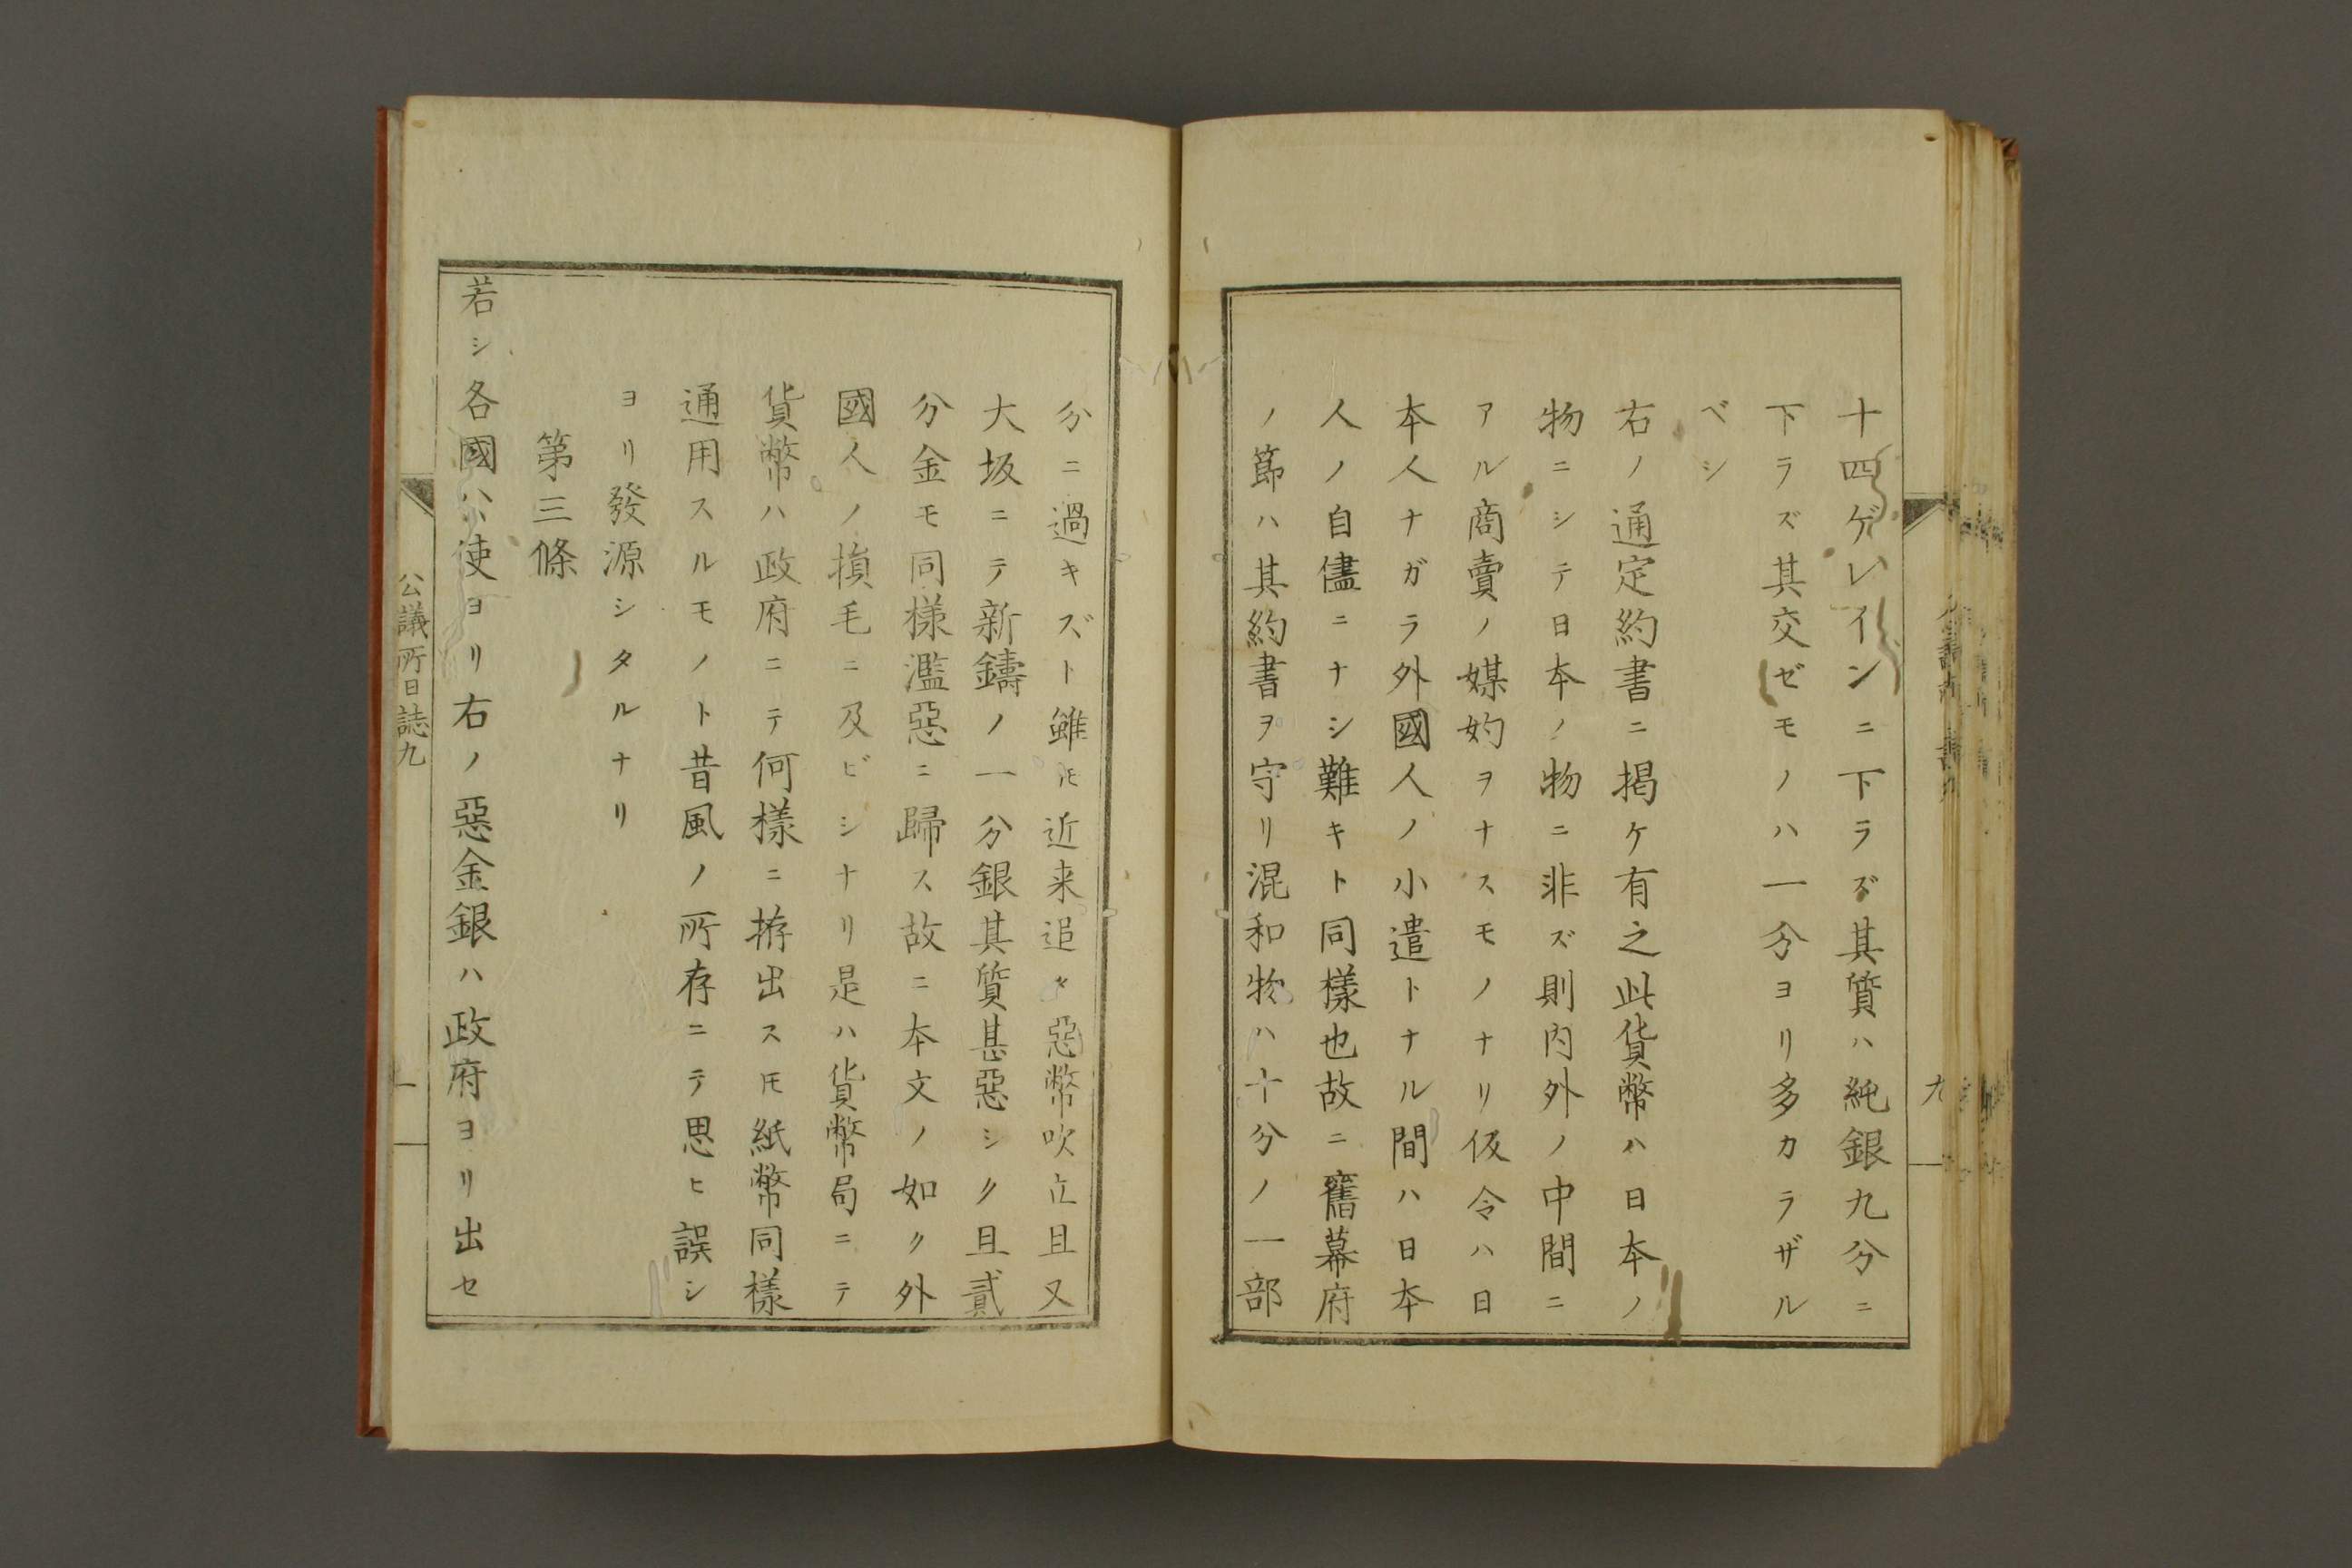 十四ゲレインニ下ラズ其質ハ純銀九分ニ
下ラズ其交ゼモノハ一分ヨリ多カラザル
ベシ
右ノ通定約書ニ掲ケ有之此貨幣ハ日本ノ
物ニシテ日本ノ物ニ非ズ則内外ノ中間ニ
アル商賣ノ媒妁ヲナスモノナリ仮令ハ日
本人ナガラ外國人ノ小遣トナル間ハ日本
人ノ自儘ニナシ難キト同樣也故ニ舊幕府
ノ節ハ其約書ヲ守リ混和物ハ十分ノ一部
九
分ニ過キズト雖𪜈近来追々惡幣吹立且又
大坂ニテ新鑄ノ一分銀其質甚惡シク且貳
分金モ同樣濫惡ニ歸ス故ニ本文ノ如ク外
國人ノ損毛ニ及ビシナリ是ハ貨幣局ニテ
貨幣ハ政府ニテ何樣ニ拵出スモ紙幣同樣
通用スルモノト昔風ノ所存ニテ思ヒ誤シ
ヨリ發源シタルナリ
第三條
若シ各國公使ヨリ右ノ惡金銀ハ政府ヨリ出セ
公議所日誌九